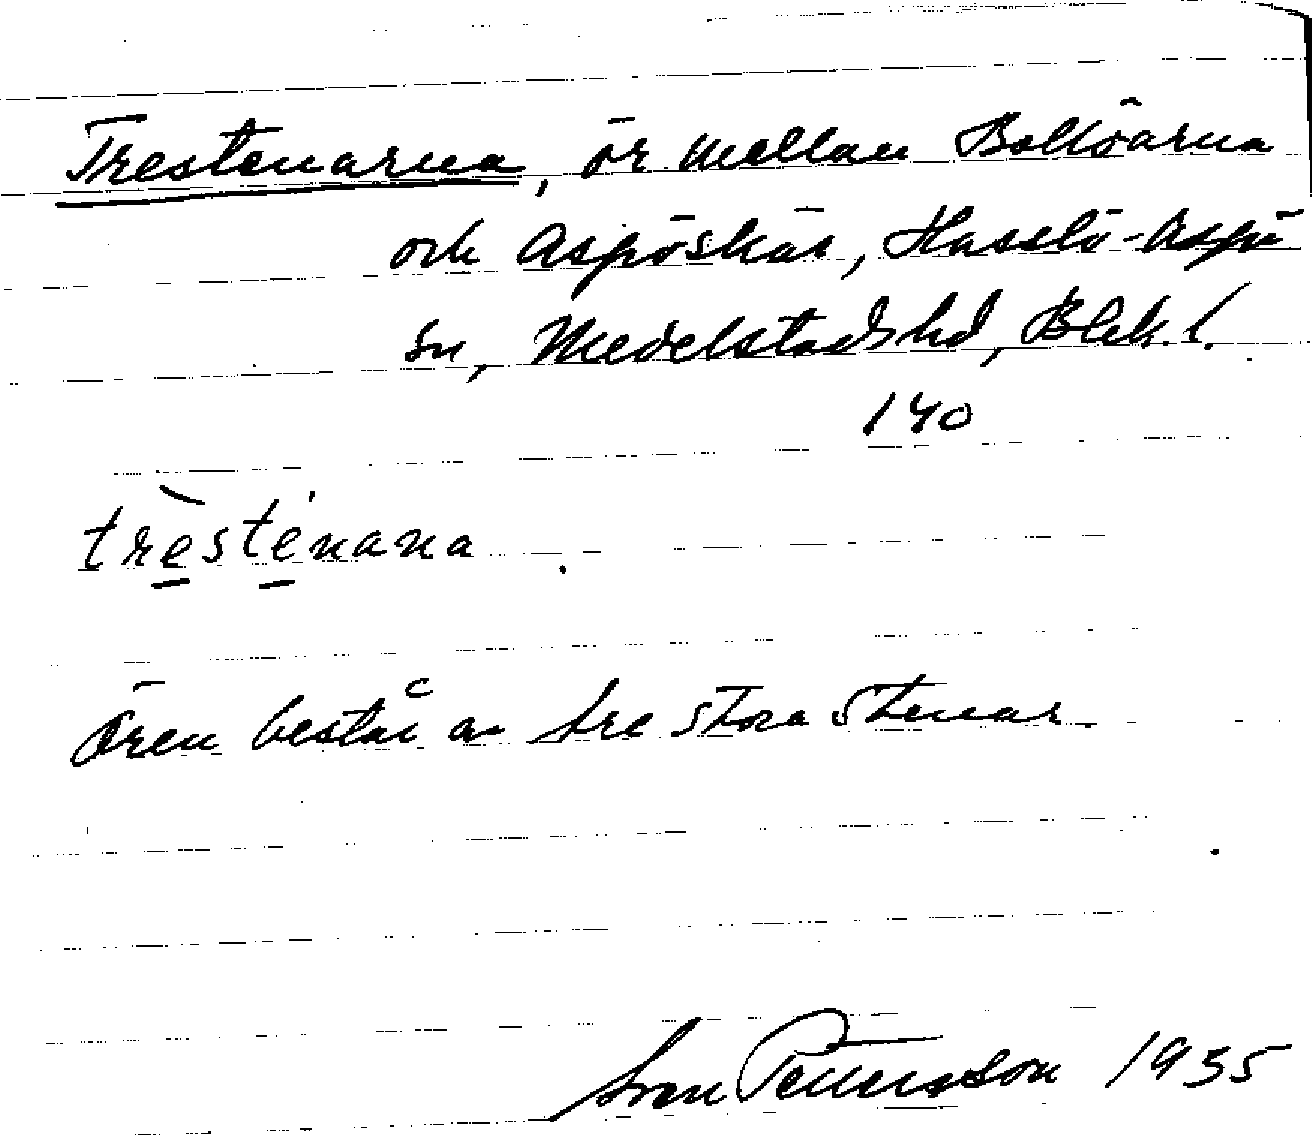 Trestenarna, ör mellan Bollöarna
och Aspöskär, Hasslö-Aspö
sn, Medelstads hd, Blek. l.
140
trèste̍nana
Ören består av tre stora stenar
Sven Pettersson 1935